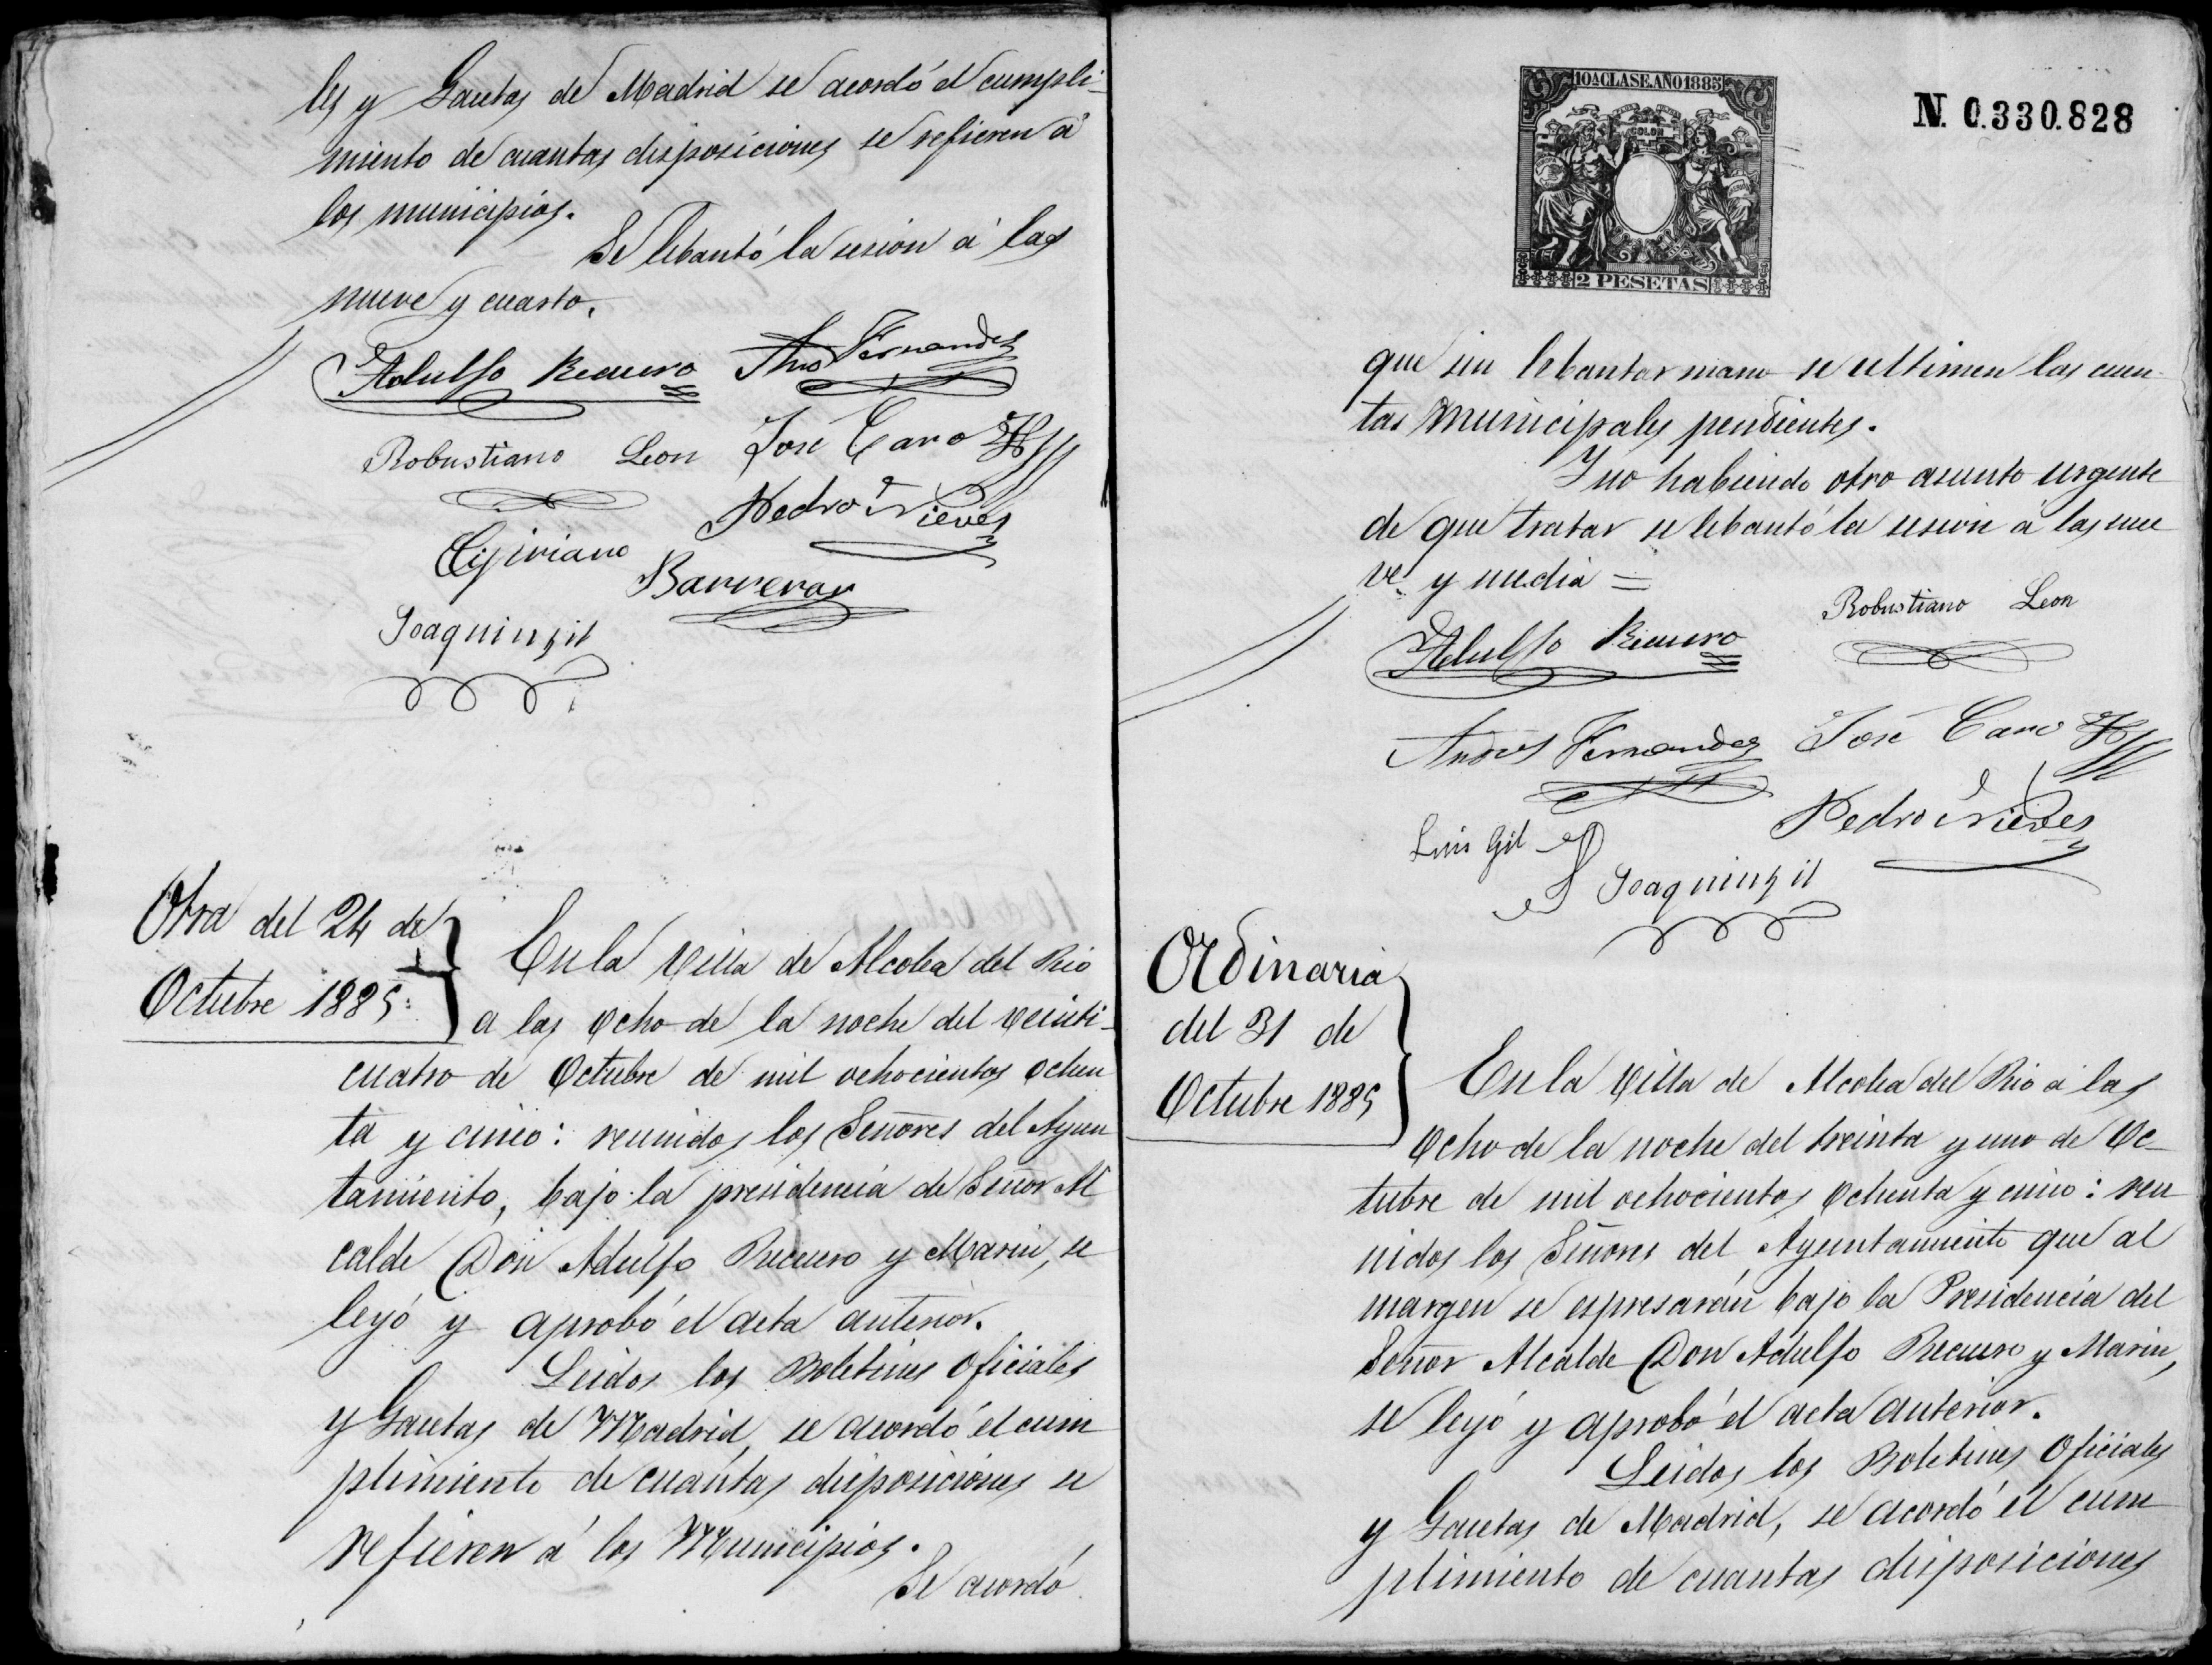 les y Gacetas de Madrid se acordó el cumpli-
miento de cuantas disposiciones se refieren á
los municipios.
Se lebantó la sesion á las
nueve y cuarto.
Adulfo Recuero Fernandez
Robustiano Leon José Caro
Pedro Nieves
Cipriano
Barreras
Joaquin Gil
Otra del 24 de
Octubre 1885.
En la Villa de Alcolea del Rio
a las ocho de la noche del veinti-
cuatro de Octubre de mil ochocientos ochen
ta y cinco: reunidos los Señores del Ayun
tamiento, bajo la presidencia de Señor Al
calde Don Adulfo Recuero y Marin, se
leyó y aprobó el acta anterior.
Leidos los Boletines Oficiales
y Gacetas de Madrid, se acordó el cum
plimiento de cuantas disposiciones se
refieren á los Municipios.
Se acordó
10A CLASE. AÑO 1885
COLON
2 PESETAS
N. 0.330.828
que sin lebantar mano se ultimen las cuen
tas Municipales pendientes.
Y no habiendo otro asunto urgente
de que tratar se lebantó la sesion á las nue
ve y media =
Adulfo Recuero Robustiano Leon
Andres Fernandez José Caro
Luis Gil Pedro Nieves
Joaquin Gil
Ordinaria
del 31 de
Octubre 1885
En la Villa de Alcolea del Rio á las
ocho de la noche del treinta y uno de Oc-
tubre de mil ochocientos ochenta y cinco: reu
nidos los Señores del Ayuntamiento que al
margen se espresarán bajo la Presidencia del
Señor Alcalde Don Adulfo Recuero y Marin,
se leyó y aprobó el acta anterior.
Leidos los Boletines Oficiales
y Gacetas de Madrid, se acordó el cum
plimiento de cuantas disposiciones